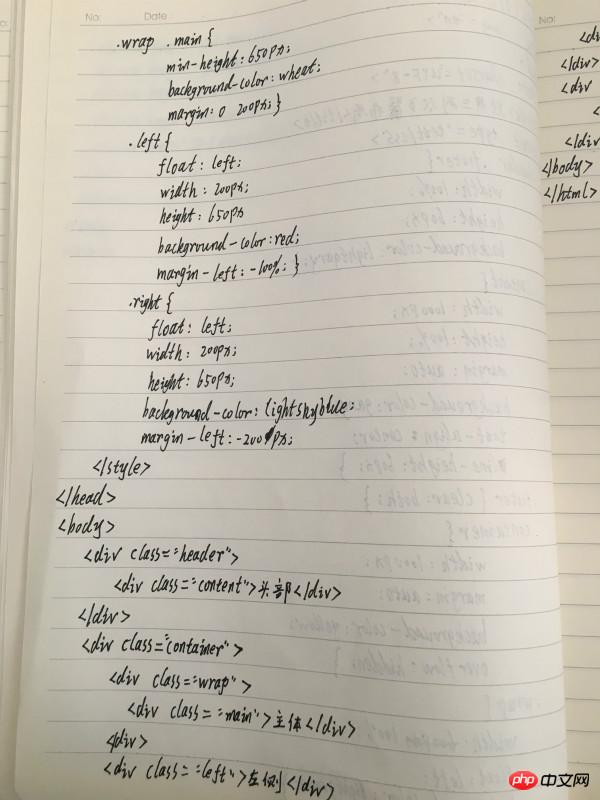 No:
Date:
No:
.wrap .main {
min-height: 650px;
background-color: wheat;
margin: 0 200px; }
.left {
float: left;
width: 200px;
height: 650px
background-color: red;
margin-left: -100%; }
.right {
float: left;
width: 200px;
height: 650px;
background-color: lightskyblue;
margin-left: -200px;
</style>
</head>
<body>
<div class="header">
<div class="content">头部</div>
</div>
<div class="container">
<div class="wrap">
<div class="main">主体</div>
</div>
<div class="left">左侧</div>
<di
</div>
<div
</div
</body>
</html>
php中文网